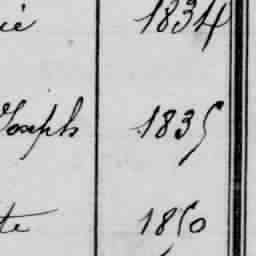 ié 1834
Joseph 1835
te 1850